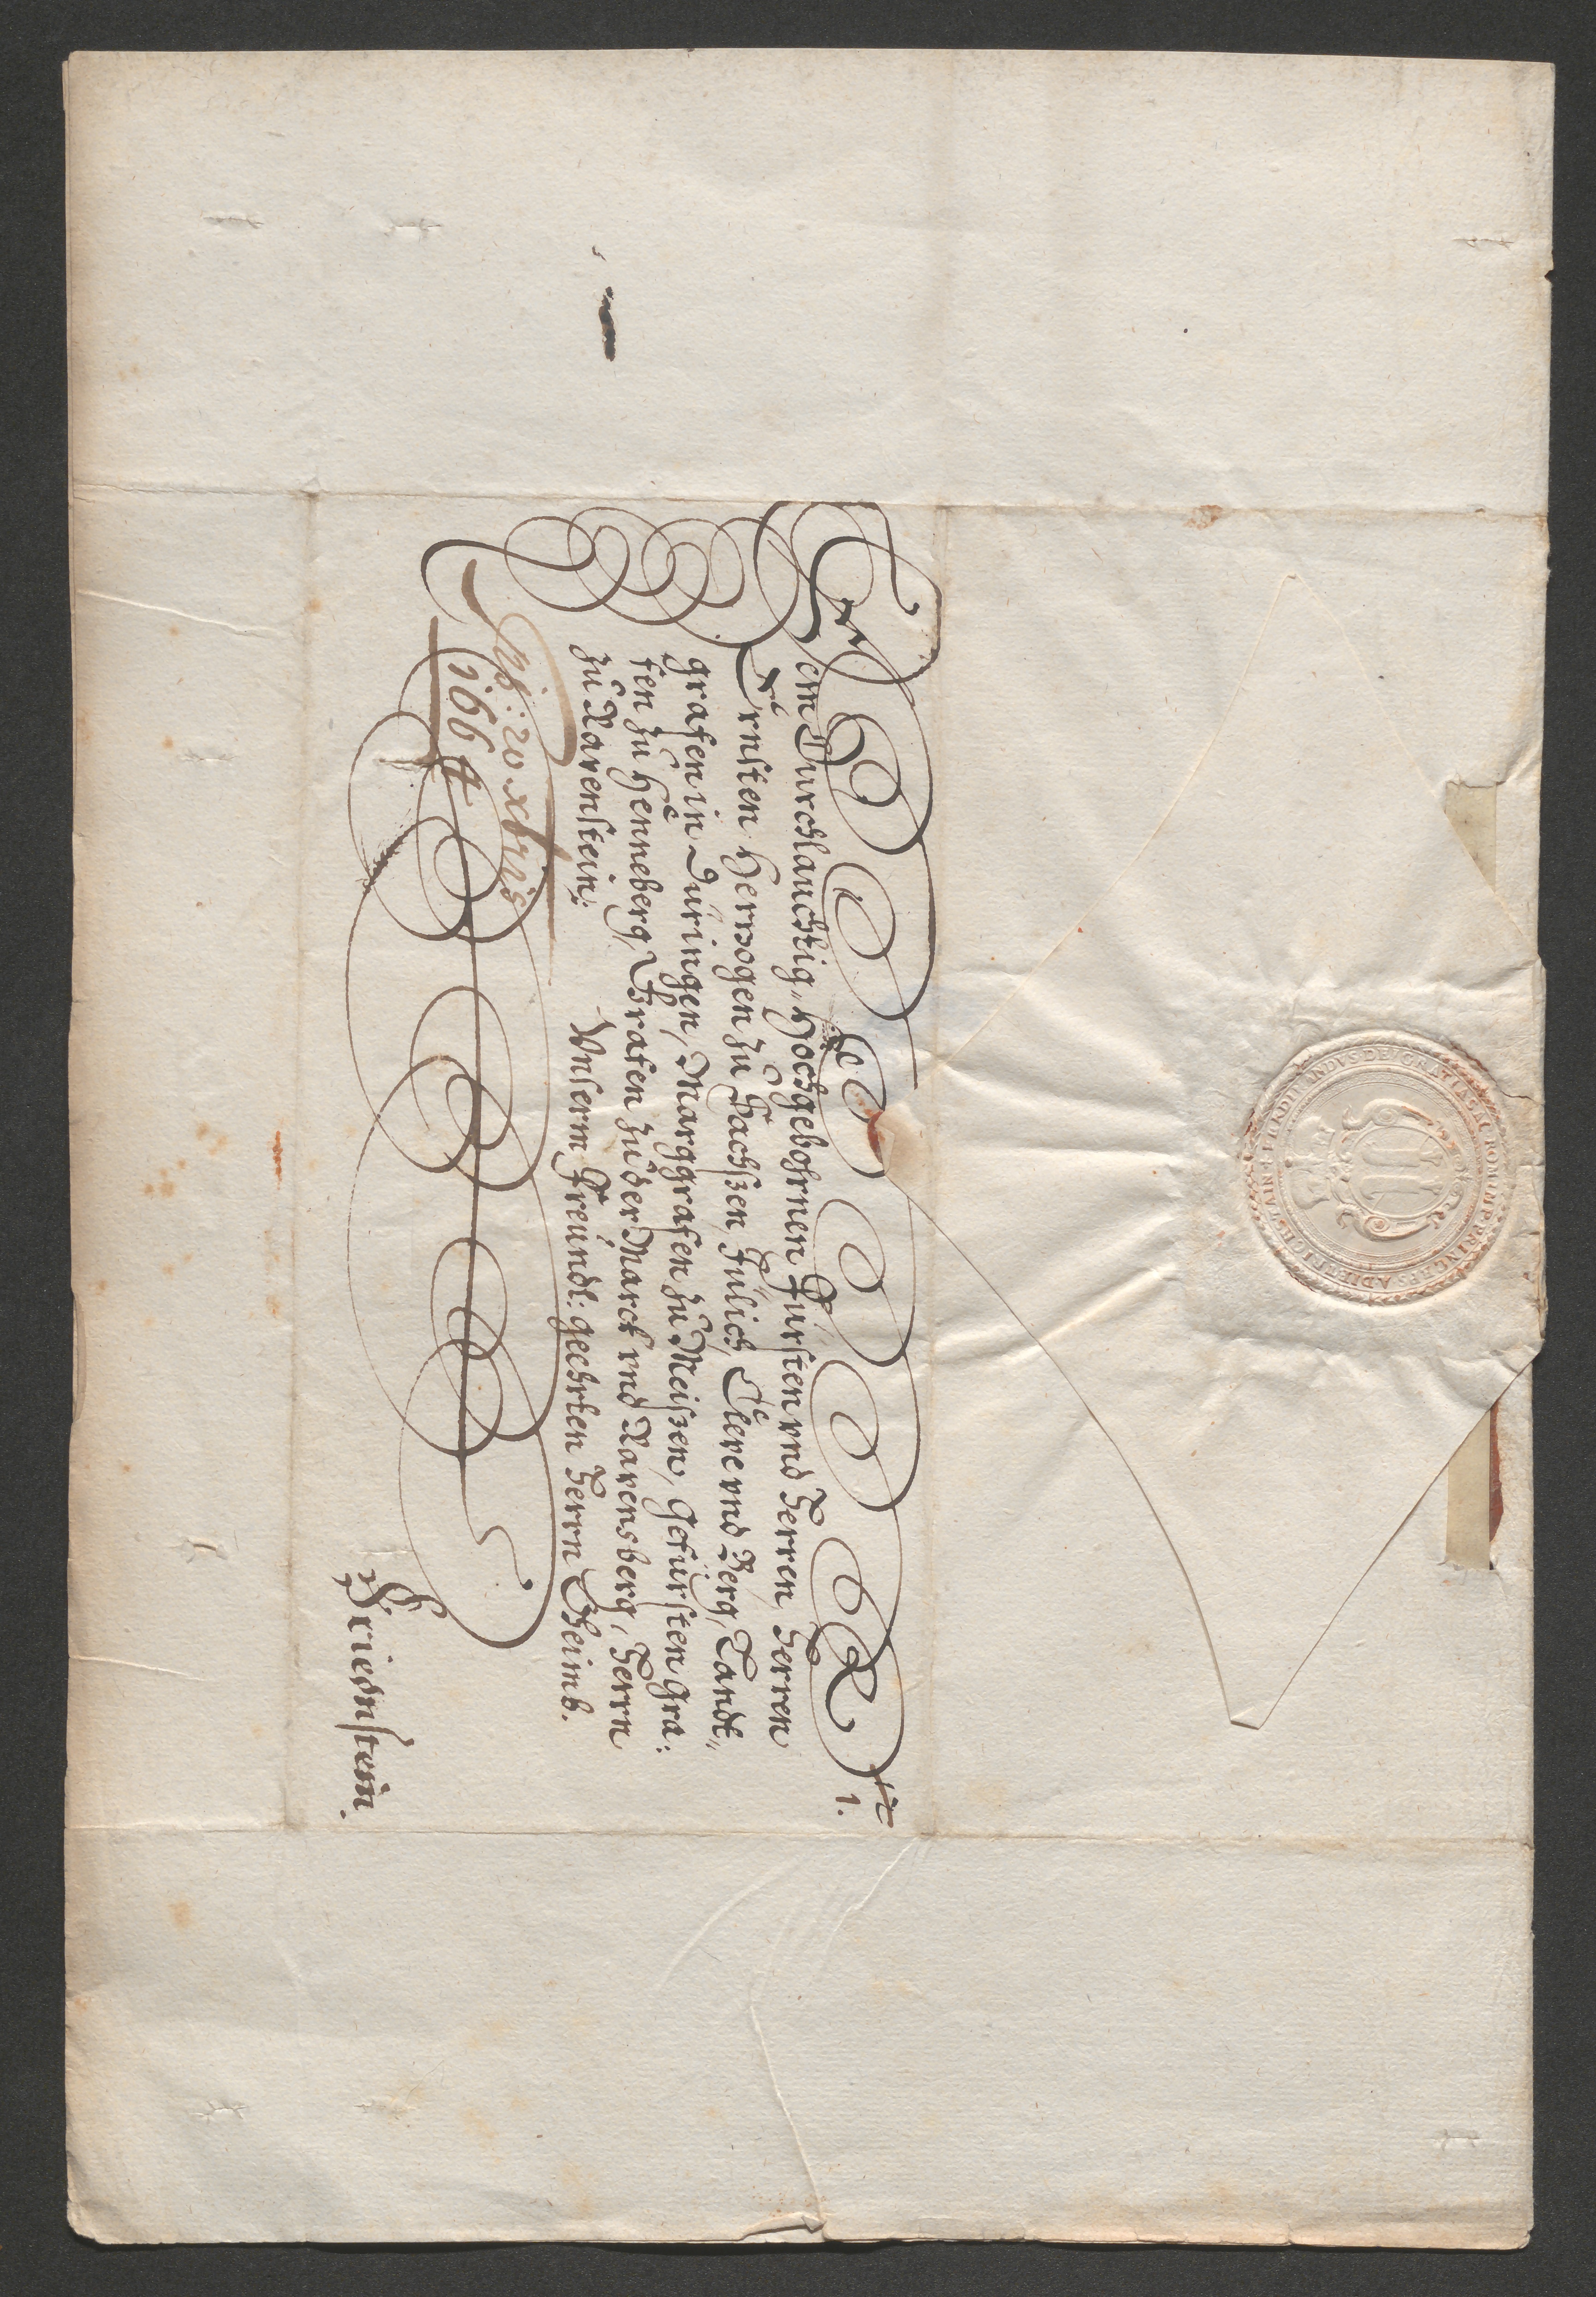 Dem Durchlauchtig, Hochgebohrnen Fürsten vnd Herren, Herren
Ernsten Hertzogen zu Sachßen, Jülich, Cleve vnd Berg, Landt„
grafen in Düringen, Marggrafen zu Meißen, Gefürsten Gra:
fen zu Henneberg, Grafen zu der Marck vnd Ravensberg, Herrn
zu Ravenstein:
Vnserm Freundl: geehrten Herrn Oheimb.
20 xbris
1664
Friednstein.
1.
FERDINANDVS DEI GRATIA SAC ROM IMP PRINCEPS A DIETRICHSTAIN